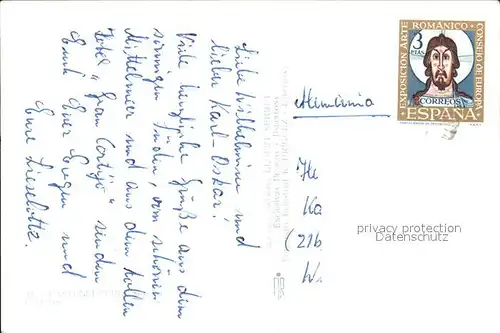 Liebe Wilhelmine und
lieber Karl-Oskar!
Viele herzliche Grüße aus dem
sonnigen Süden, vom schönen
Mittelmeer und aus dem tollen
Hotel "Gran Cortijo" senden
Euch Euer Eugen und
Eure Lieselotte.
Alemania
He
Ka
(21b
W
EXPOSICION ARTE ROMÁNICO · CONSEJO DE EUROPA
3
PTAS
CORREOS
ESPAÑA
privacy protection
Datenschutz